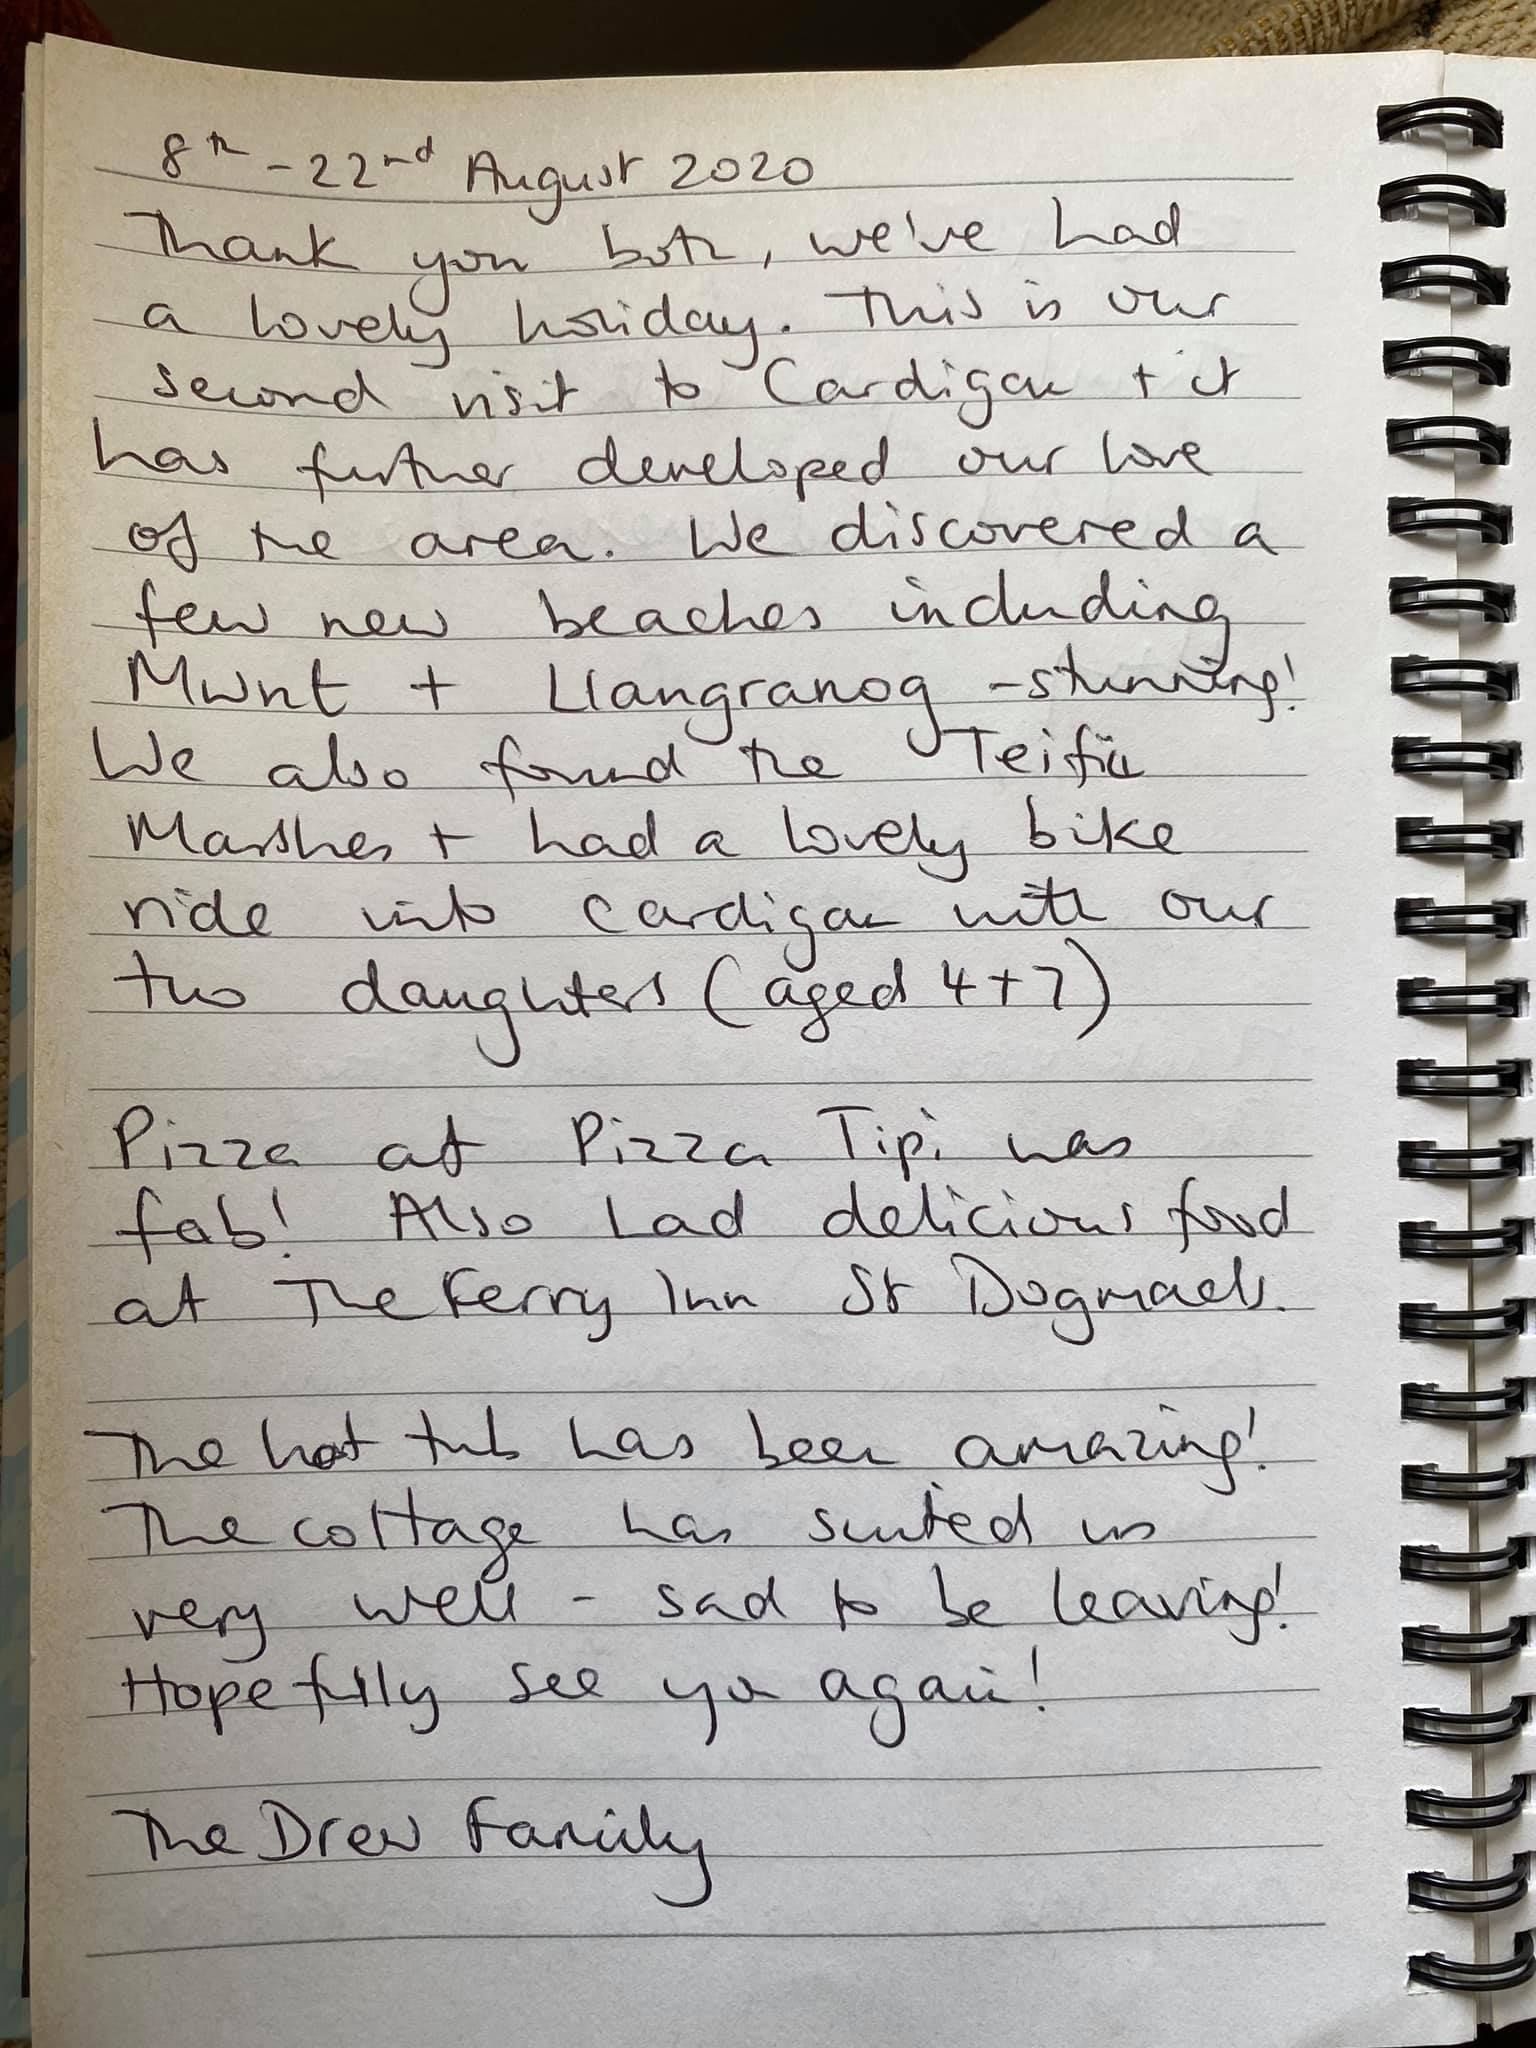 8th - 22nd August 2020
Thank you both, we've had
a lovely holiday. This is our
second visit to Cardigan + it
has further developed our love
of the area. We discovered a
few new beaches including
Mwnt + Llangranog - stunning!
We also found the Teifii
Marshes + had a lovely bike
ride into Cardigan with our
two daughters (aged 4+7)
Pizza at Pizza Tipi was
fab! Also had delicious food
at The Ferry Inn St Dogmaels.
The hot tub has been amazing!
The cottage has suited us
very well - sad to be leaving!
Hopefully see you again!
The Drew Family